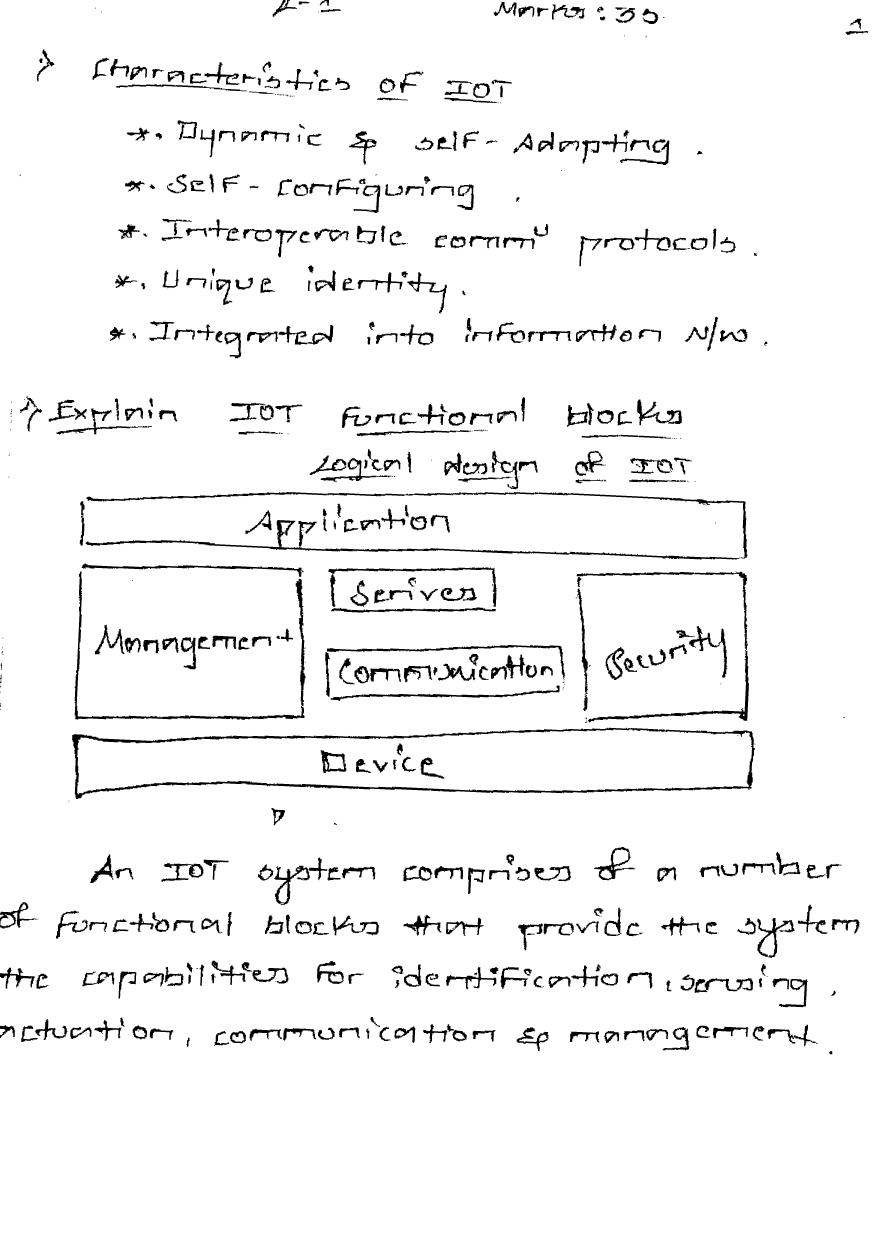 Marks : 35
1
Characteristics of IOT
*. Dynamic & self - Adapting .
*. Self - configuring .
*. Interoperable commⁿ protocols .
*. Unique identity .
*. Integrated into information N/w .
Explain IOT Functional blocks
Logical design of IOT
Application
Management
Serives
Communication
Security
Device
An IOT system comprises of a number
of functional blocks that provide the system
the capabilities for identification, sensing,
actuation, communication & management.